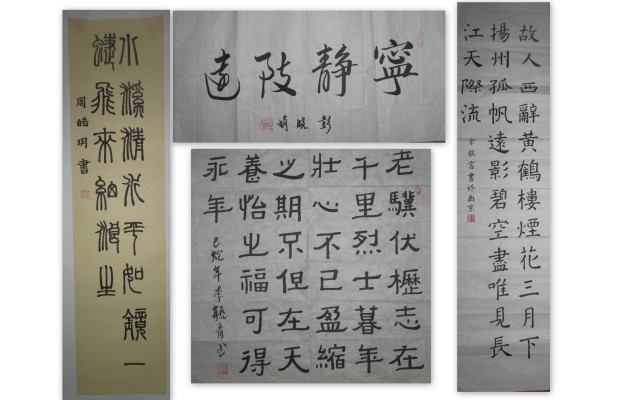 小溪清水平如鏡一
飛來細浪生
周皓玥書
寧靜致遠
彭曉娟
老驥伏櫪志在
千里烈士暮年
壯心不已盈縮
之期不但在天
養怡之福可得
永年
己蛇年李毓青書
故人西辭黃鶴樓煙花三月下
揚州孤帆遠影碧空盡唯見長
江天際流
言書於南京